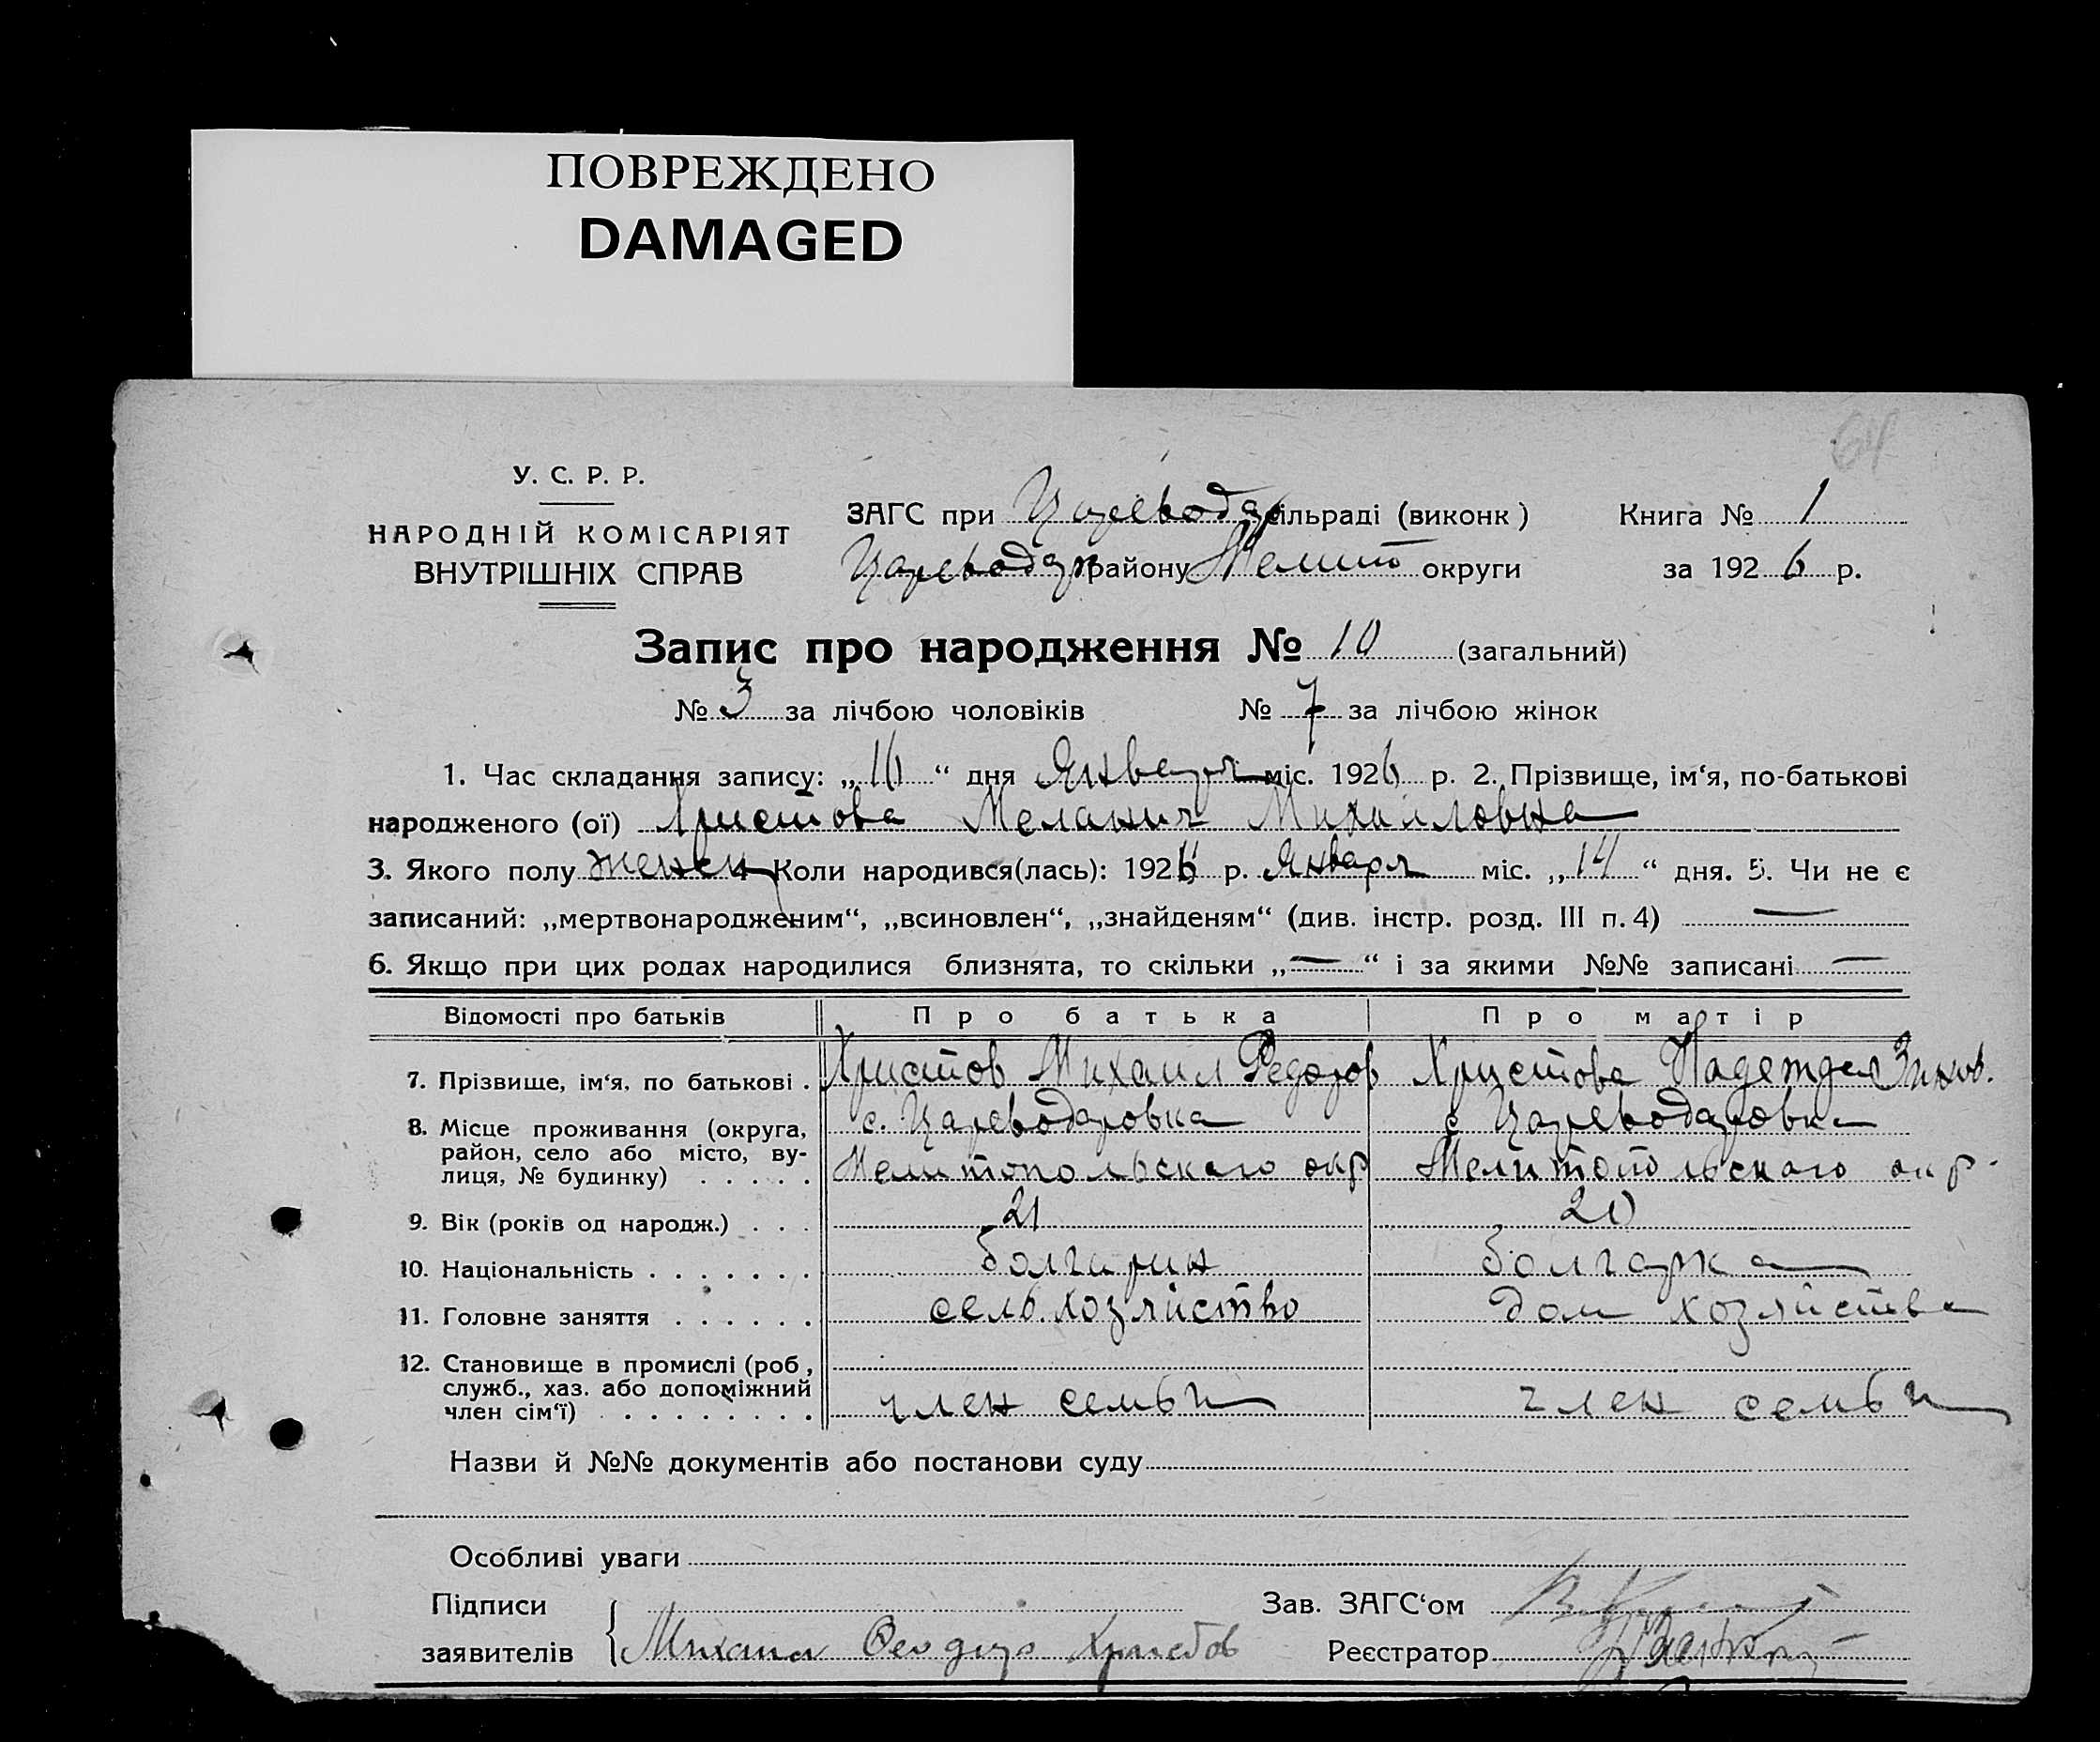 ПОВРЕЖДЕНО
DAMAGED
64
У. С. Р. Р.
НАРОДНІЙ КОМІСАРІЯТ
ВНУТРІШНІХ СПРАВ
ЗАГС при Цареводар сільраді (виконк)
Цареводар району Мелит округи
Книга № 1
за 1926 р.
Запис про народження № 10 (загальний)
№ 3 за лічбою чоловіків № 7 за лічбою жінок
1. Час складання запису: „16“ дня Января міс. 1926 р. 2. Прізвище, ім‘я, по-батькові
народженого (ої) Христова Мелания Михайловна
3. Якого полу женск 4 Коли народився(лась): 1926 р. Января міс. „14“ дня. 5. Чи не є
записаний: „мертвонародженим“, „всиновлен“, „знайденям“ (див. інстр. розд. III п. 4) —
6. Якщо при цих родах народилися близнята, то скільки „—“ і за якими №№ записані —
Відомості про батьків Про батька Про матір
7. Прізвище, ім‘я, по батькові . Христов Михаил Федоров Христова Надежда Зинов.
8. Місце проживання (округа, с. Цареводаровка с Цареводаровка
район, село або місто, ву-
лиця, № будинку) . . . . . Мелитопольского окр Мелитопольского окр.
9. Вік (років од народж.) . . . 21 20
10. Національність . . . . . . . болгарин болгарка
11. Головне заняття . . . . . . сель. хозяйство дом хозяйства
12. Становище в промислі (роб.,
служб., хаз. або допоміжний
член сім‘ї) . . . . . . . . . член семьи член семьи
Назви й №№ документів або постанови суду
Особливі уваги
Підписи Зав. ЗАГС‘ом
заявителів Михаил Христов Реєстратор